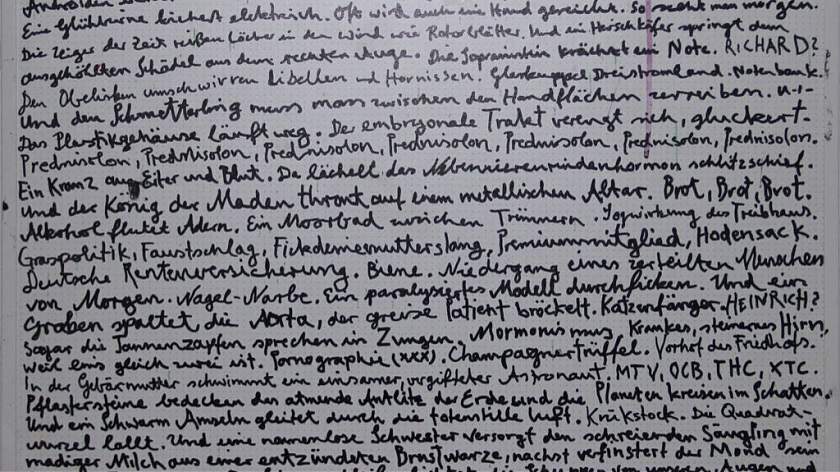 Eine Glühbirne lächert elektrisch. Oft wird auch eine Hand gereicht. So sieht man morgen.
Die Zeiger der Zeit reißen Löcher in den Wind wie Rotorblätter. Und ein Hirschkäfer springt dem
ausgehöhlten Schädel aus dem rechten Auge. Die Sopranistin krächzt ein Note. RICHARD?
Den Obelisken umschwirren Libellen und Hornissen! Glaskuppel Dreistromland. Notenbank!
Und den Schmetterling muss man zwischen den Handflächen zerreiben.
Das Plastikgehäuse läuft weg. Der embryonale Trakt verengt sich, gluckert.
Prednisolon, Prednisolon, Prednisolon, Prednisolon, Prednisolon, Prednisolon, Prednisolon.
Ein Kranz aus Eiter und Blut. Da lächelt das Nebennierenrindenhormon schlitzschief.
Und der König der Maden thront auf einem metallischen Altar. Brot, Brot, Brot.
Alkohol flutet Adern. Ein Moorbad zwischen Trümmern. des Treibhaus.
Graspolitik, Faustschlag, Fickdeinemutterslang, Premiummitglied, Hodensack.
Deutsche Rentenversicherung. Biene. Niedergang eines zerteilten Menschen
von Morgen. Nagel-Narbe. Ein paralysiertes Modell durchficken. Und ein
Graben spaltet die Aorta, der greise Patient bröckelt. Katzenfänger. HEINRICH?
Sogar die Tannenzapfen sprechen in Zungen. Mormonismus. Krankes, steinernes Hirn,
weil eins gleich zwei ist. Pornographie (xxx). Champagnertrüffel. Vorhof des Friedhofs.
In der Gebärmutter schwimmt ein einsamer, vergifteter Astronaut, MTV, OCB, THC, XTC.
Pflastersteine bedecken das atmende Antlitz der Erde und die Planeten kreisen im Schatten.
Und ein Schwarm Amseln gleitet durch die totenstille Luft. Krükstock. Die Quadrat-
wurzel lallt. Und eine namenlose Schwester versorgt den schreienden Säugling mit
madiger Milch aus einer entzündeten Brustwarze, nachst verfinstert der Mond sein